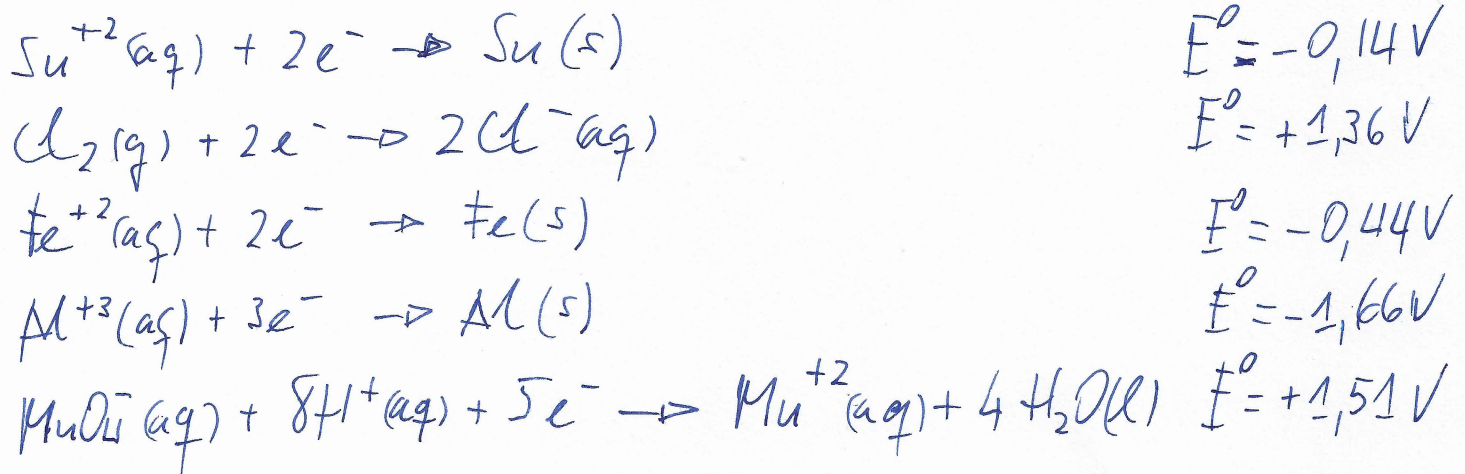 Sn⁺²(aq) + 2e⁻ → Sn(s) E⁰ = -0,14V
Cl₂(g) + 2e⁻ → 2Cl⁻(aq) E⁰ = +1,36 V
Fe⁺²(aq) + 2e⁻ → Fe(s) E⁰ = -0,44V
Al⁺³(aq) + 3e⁻ → Al(s) E⁰ = -1,66V
MnO₄⁻(aq) + 8H⁺(aq) + 5e⁻ → Mn⁺²(aq) + 4H₂O(l) E⁰ = +1,51V